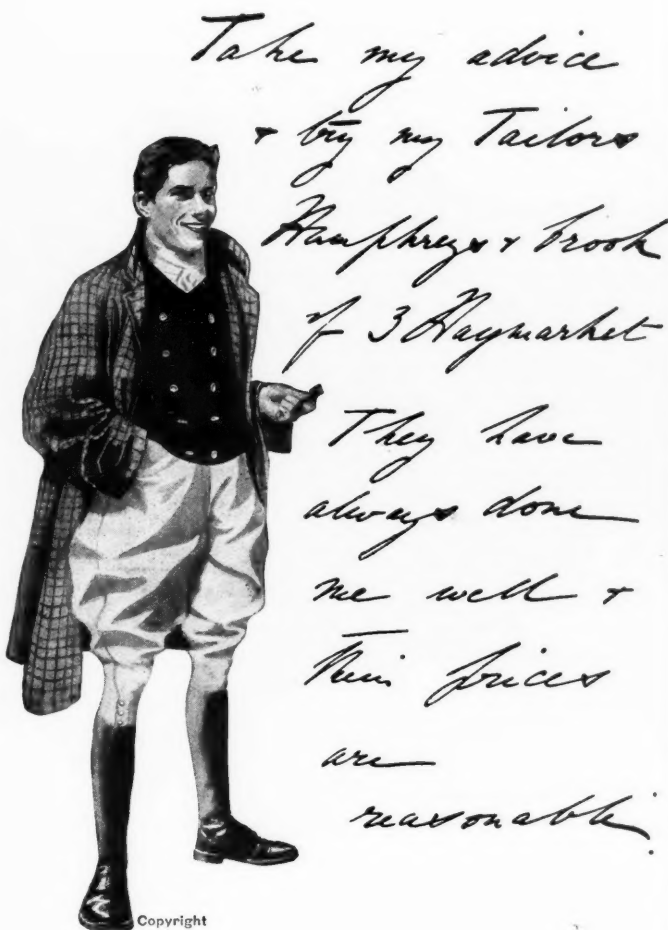 Take my advice
+ try my Tailors
Humphreys + Crook
of 3 Haymarket
They have
always done
me well +
Their prices
are
reasonable.
Copyright